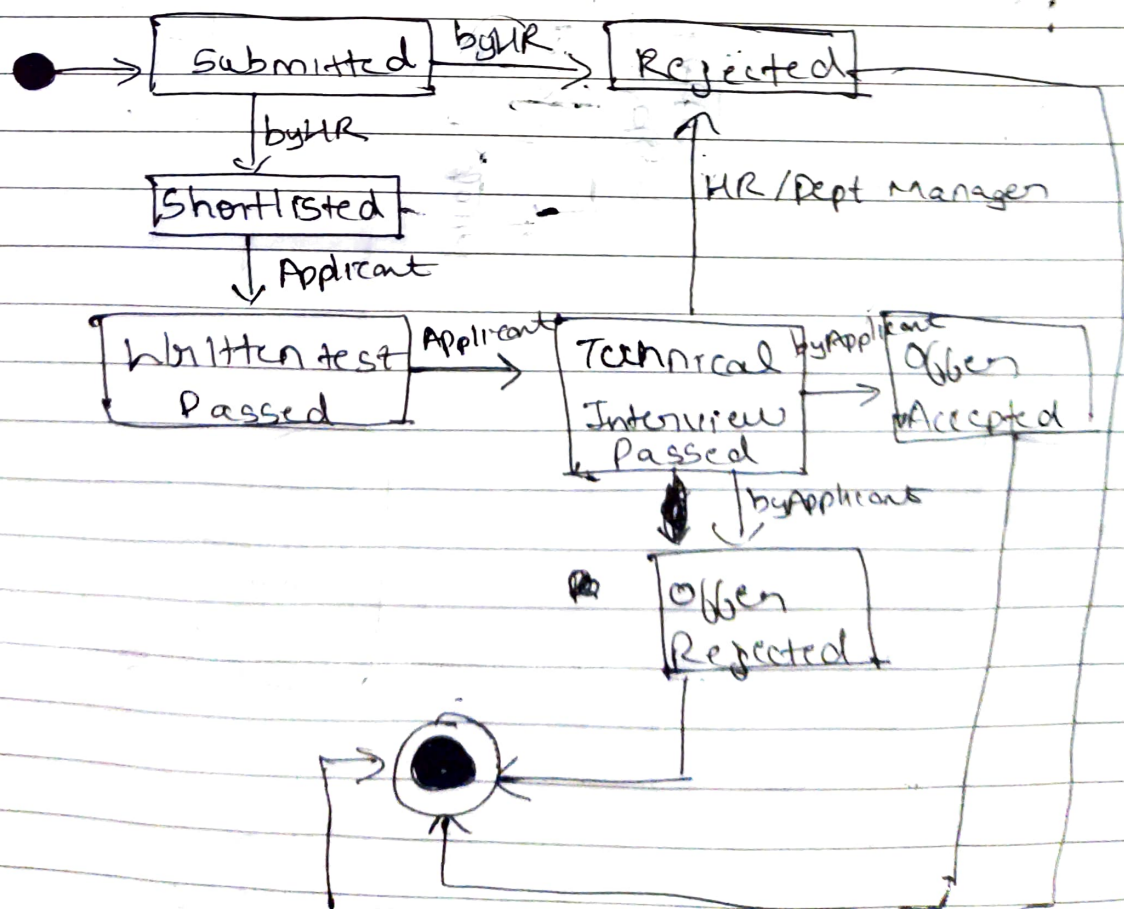 Submitted
byHR
Rejected
byHR
HR/Dept Manager
Shortlisted
Applicant
Written test
Passed
Applicant
Technical
Interview
Passed
byApplicant
Offer
Accepted
byApplicant
Offer
Rejected